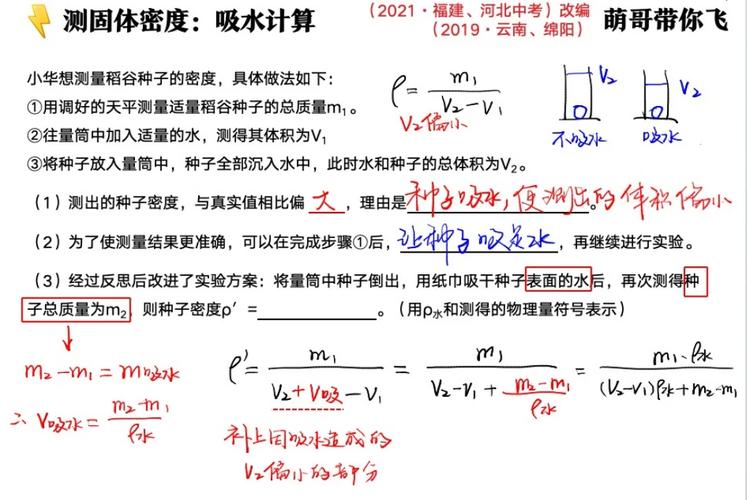 测固体密度：吸水计算
（2021·福建、河北中考）改编
（2019·云南、绵阳）
萌哥带你飞
小华想测量稻谷种子的密度，具体做法如下：
①用调好的天平测量适量稻谷种子的总质量m₁。
②往量筒中加入适量的水，测得其体积为V₁
③将种子放入量筒中，种子全部沉入水中，此时水和种子的总体积为V₂。
ρ = m₁ / (V₂ - V₁)
V₂偏小
V₂
V₂
不吸水
吸水
（1）测出的种子密度，与真实值相比偏 大 ，理由是 种子吸水，使测出的体积偏小 。
（2）为了使测量结果更准确，可以在完成步骤①后， 让种子吸足水 ，再继续进行实验。
（3）经过反思后改进了实验方案：将量筒中种子倒出，用纸巾吸干种子表面的水后，再次测得种
子总质量为m₂，则种子密度ρ′ =____________。（用ρ水和测得的物理量符号表示）
m₂ - m₁ = m吸水
∴ V吸水 = (m₂ - m₁) / ρ水
ρ′ = m₁ / (V₂ + V吸 - V₁) = m₁ / (V₂ - V₁ + (m₂ - m₁) / ρ水) = m₁·ρ水 / ((V₂ - V₁)ρ水 + m₂ - m₁)
补上因吸水造成的
V₂偏小的部分